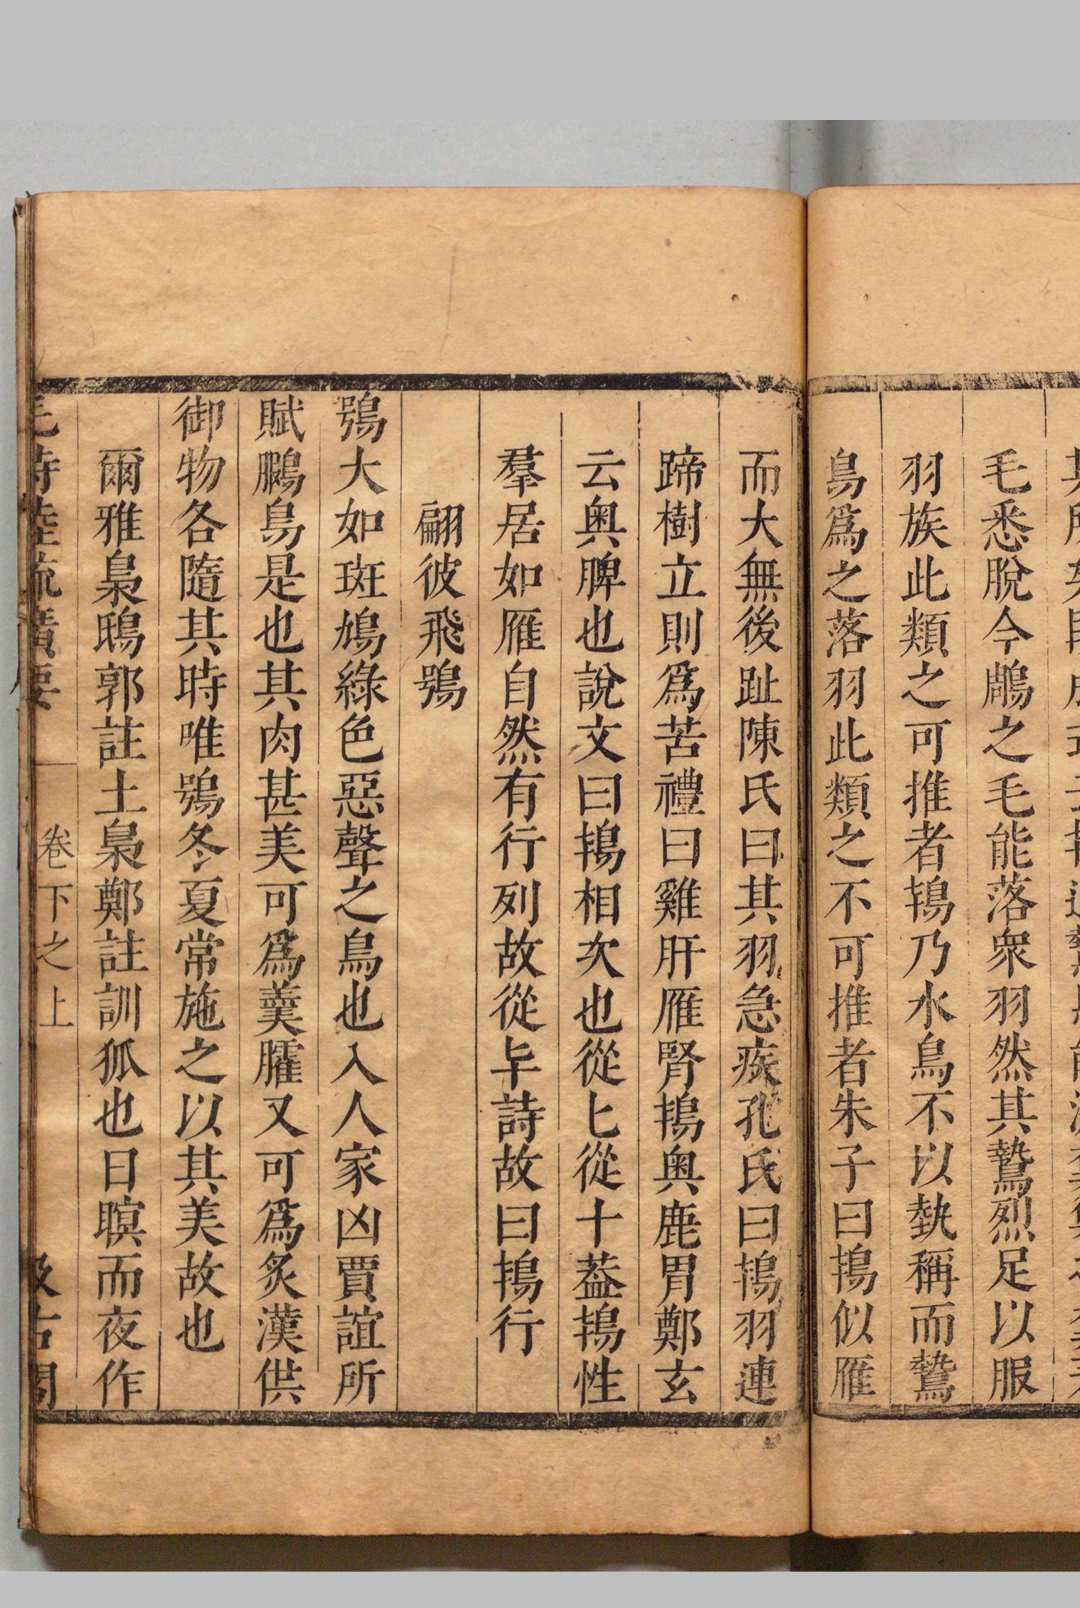 毛悉脫今鷫之毛能落衆羽然其鷙烈足以服
羽族此類之可推者鴇乃水鳥不以執稱而鷙
鳥爲之落羽此類之不可推者朱子曰鴇似雁
而大無後趾陳氏曰其羽急疾孔氏曰鴇羽連
蹄樹立則爲苦禮曰雞肝雁腎鴇奥鹿胃鄭玄
云奥脾也說文曰鴇相次也從匕從十葢鴇性
羣居如雁自然有行列故從𠤏詩故曰鴇行
翩彼飛鴞
鴞大如斑鳩綠色惡聲之鳥也入人家凶賈誼所
賦鵩鳥是也其肉甚美可爲羹臛又可爲炙漢供
御物各隨其時唯鴞冬夏常施之以其美故也
爾雅梟鴟郭註土梟鄭註訓狐也日瞑而夜作
毛詩陸疏廣要 卷下之上 汲古閣